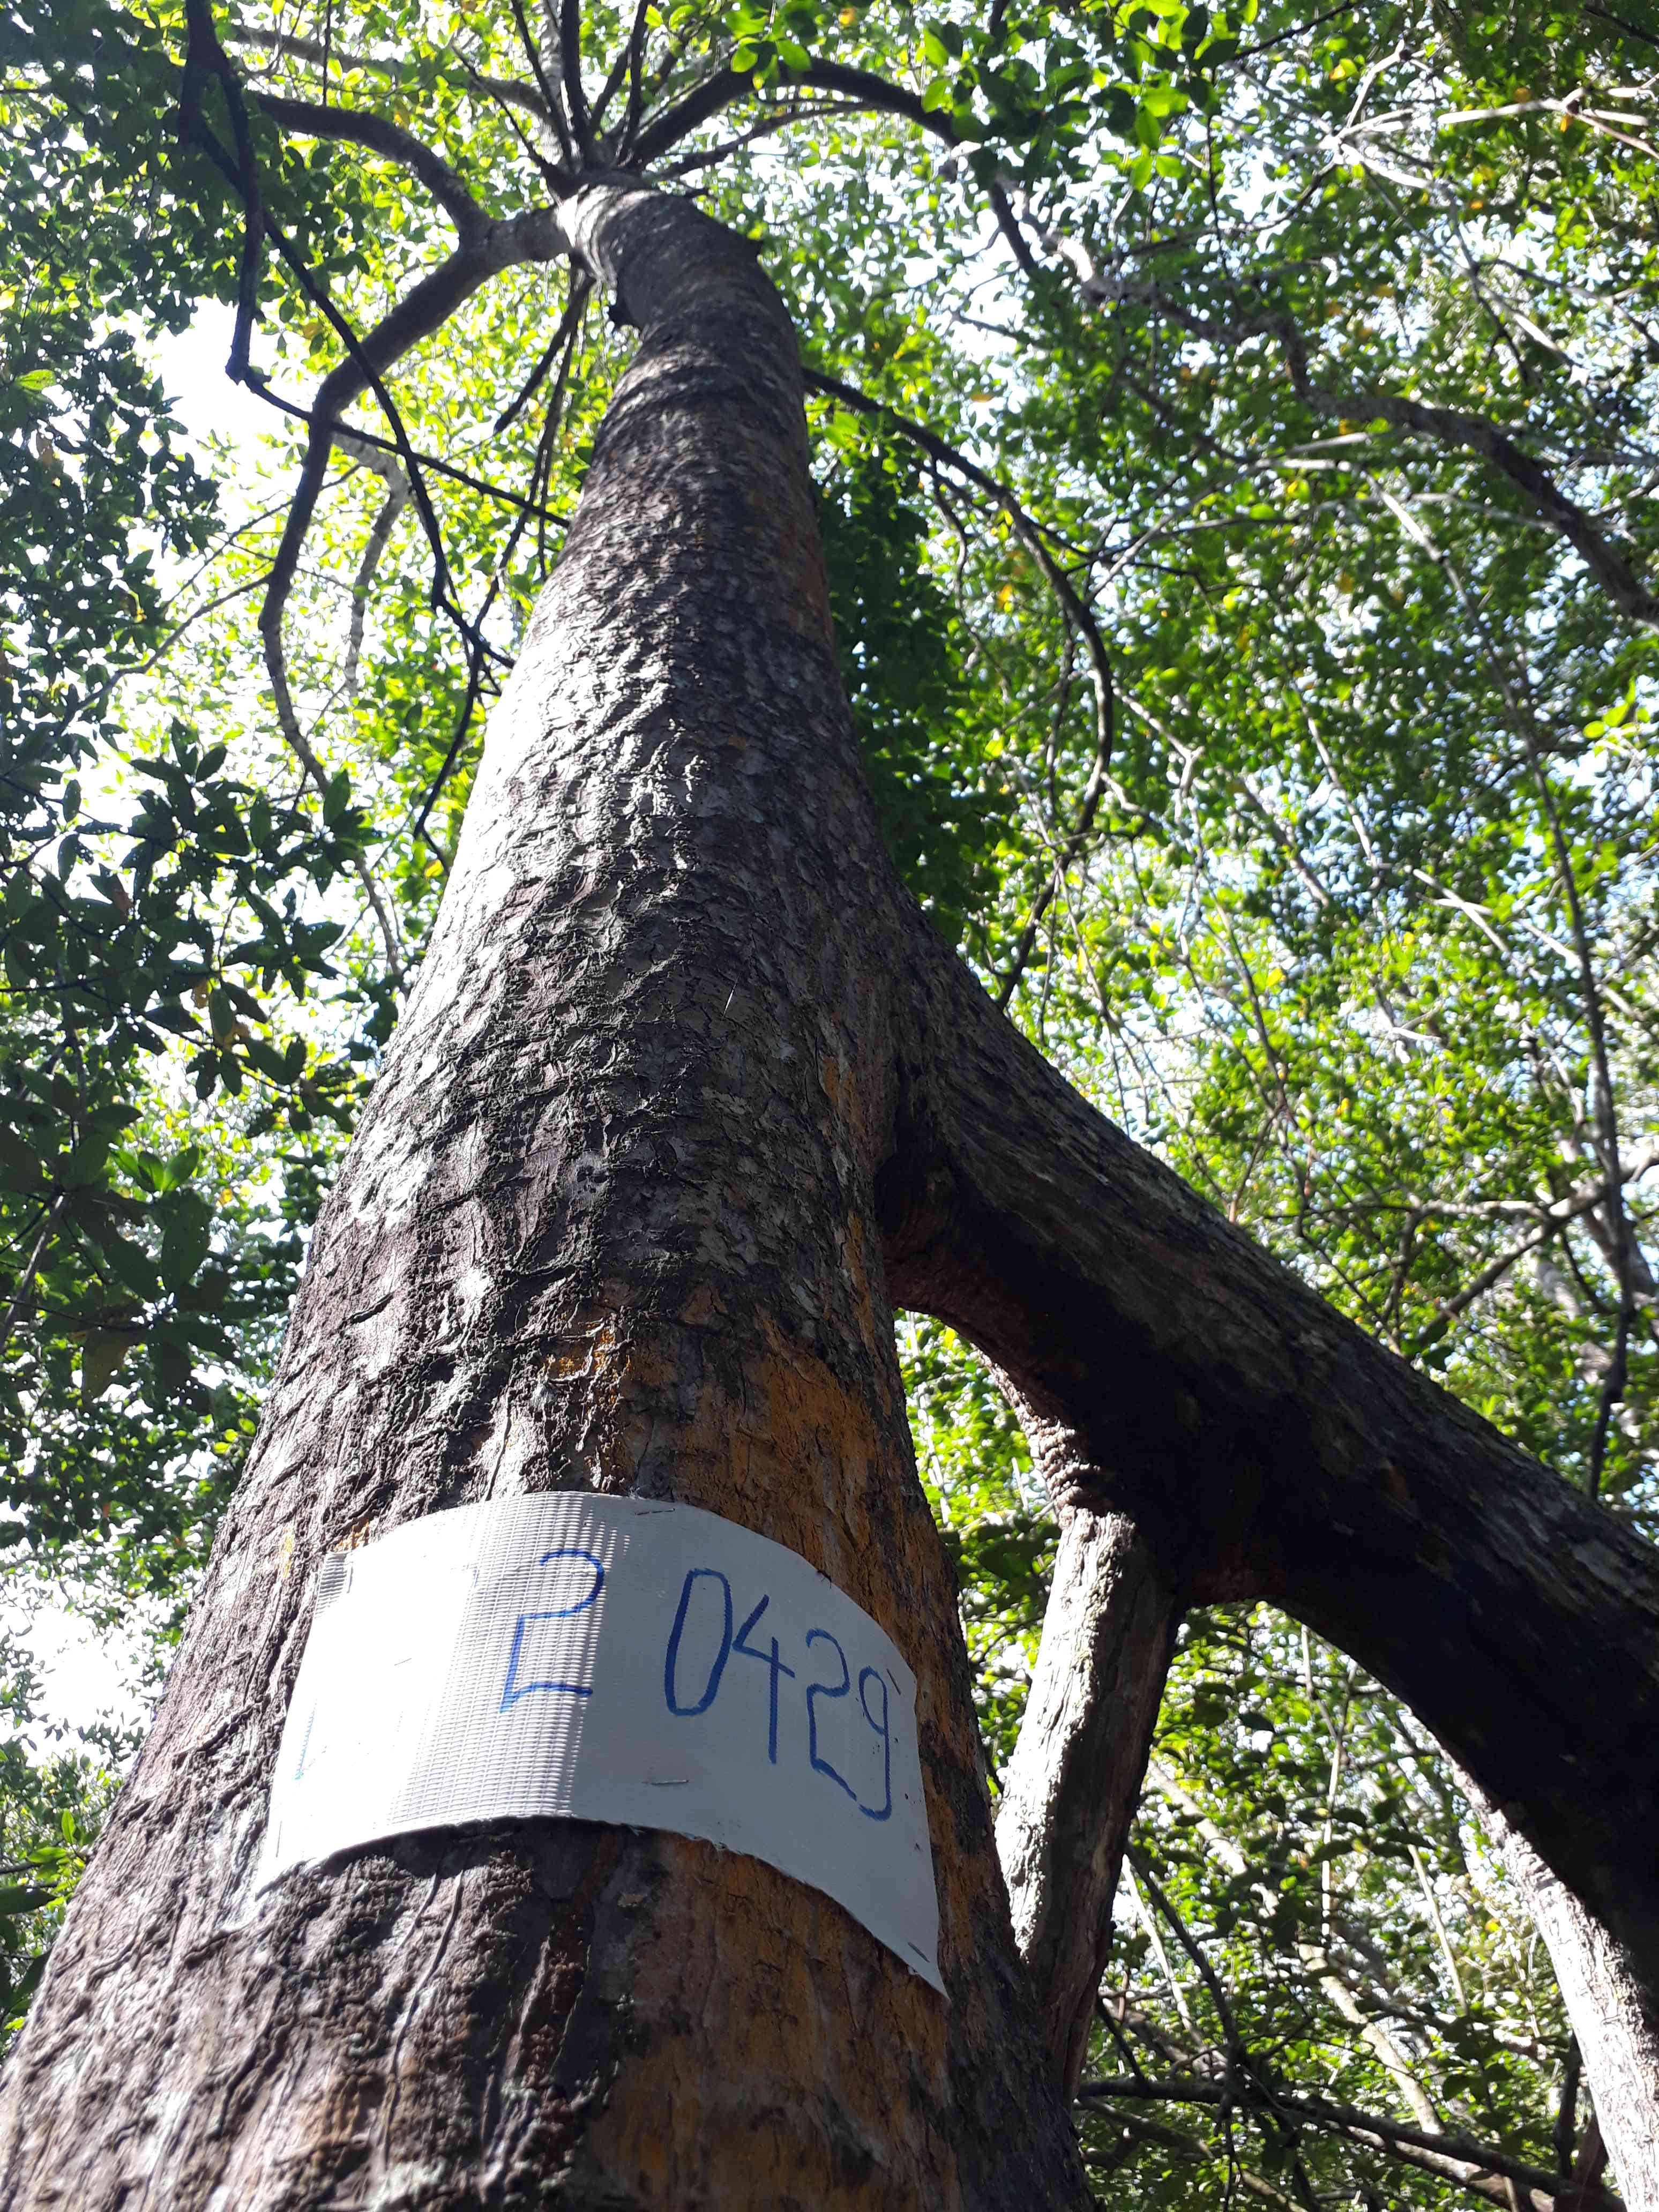 2 0429